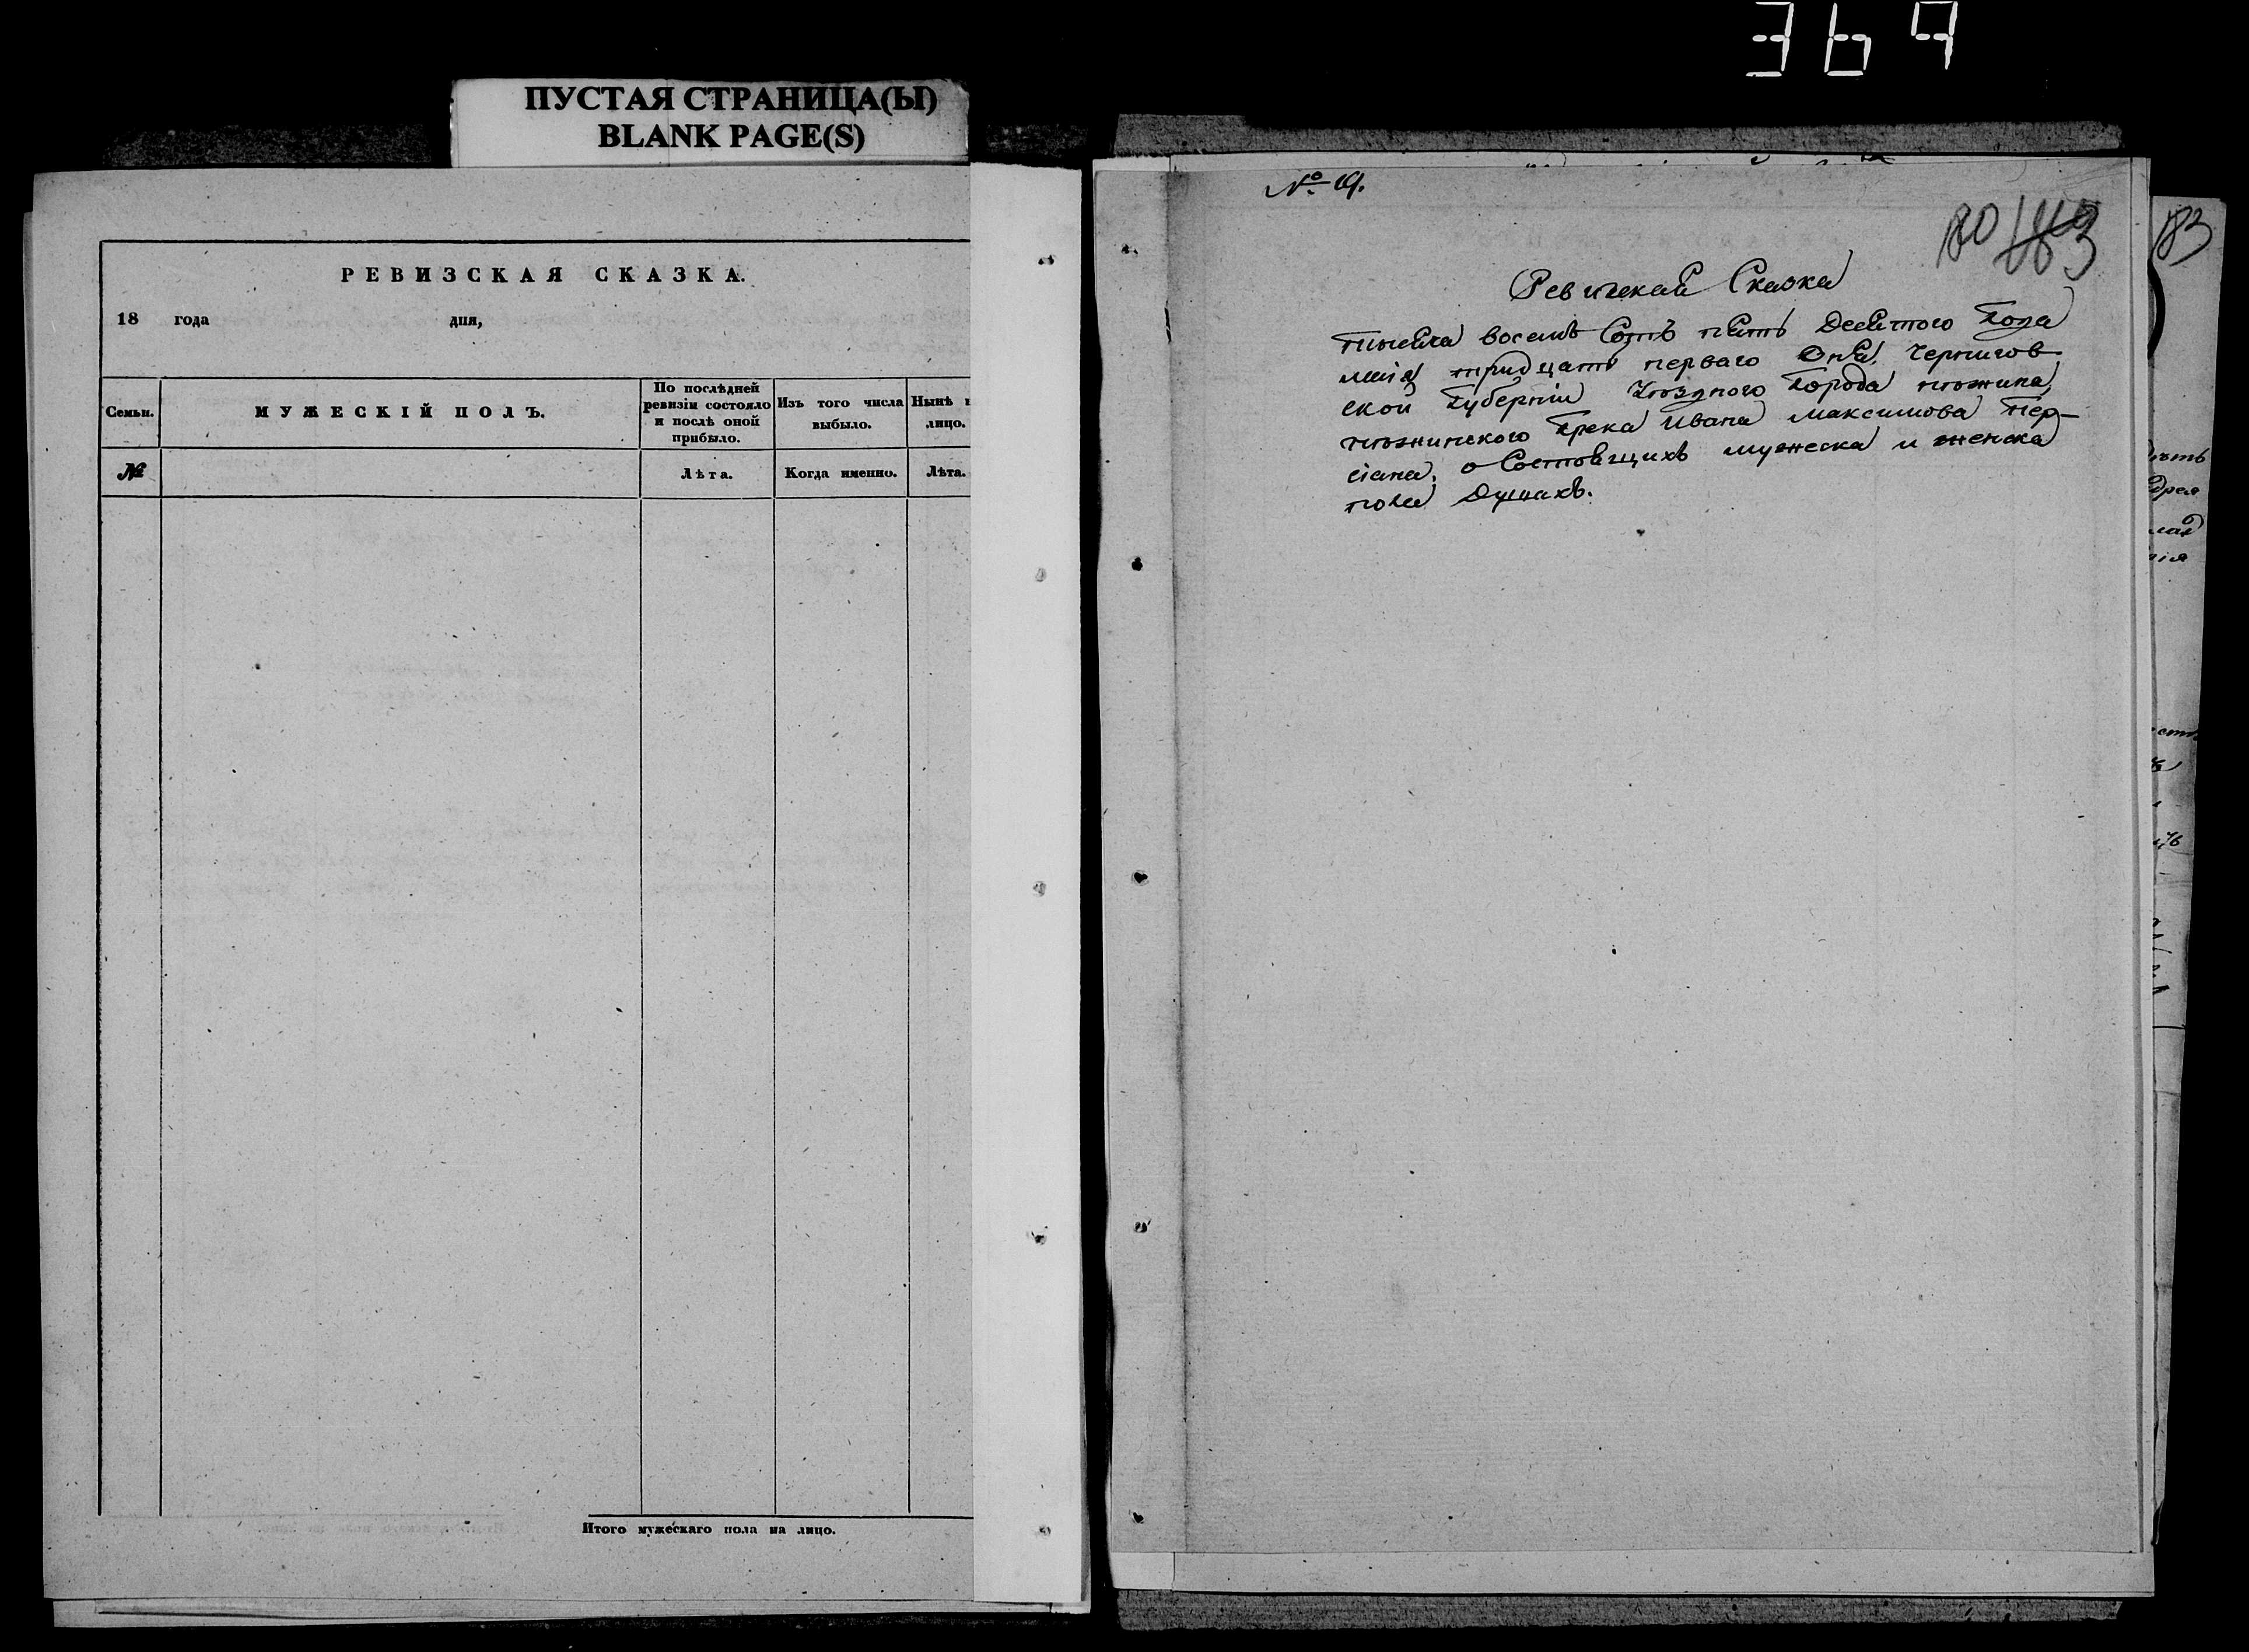 369
ПУСТАЯ СТРАНИЦА(Ы)
BLANK PAGE(S)
РЕВИЗСКАЯ СКАЗКА.
18 года дня,
Семьи.
МУЖЕСКІЙ ПОЛЪ.
По послѣдней
ревизіи состояло
и послѣ оной
прибыло.
Изъ того числа
выбыло.
Нынѣ
лицо.
№
Лѣта.
Когда именно.
Лѣта.
Итого мужескаго пола на лицо.
№ 19.
180 183
183
Ревизская Сказка
тысяча восемь Сотъ пять Десятого Года
маія тридцать перваго Дня. Чернигов
ской Губерніи Уѣзднаго Города нѣжина,
нѣжинского Грека Ивана Максимова Пер-
сіана, о Состоящихъ мужеска и женска
пола Душахъ.